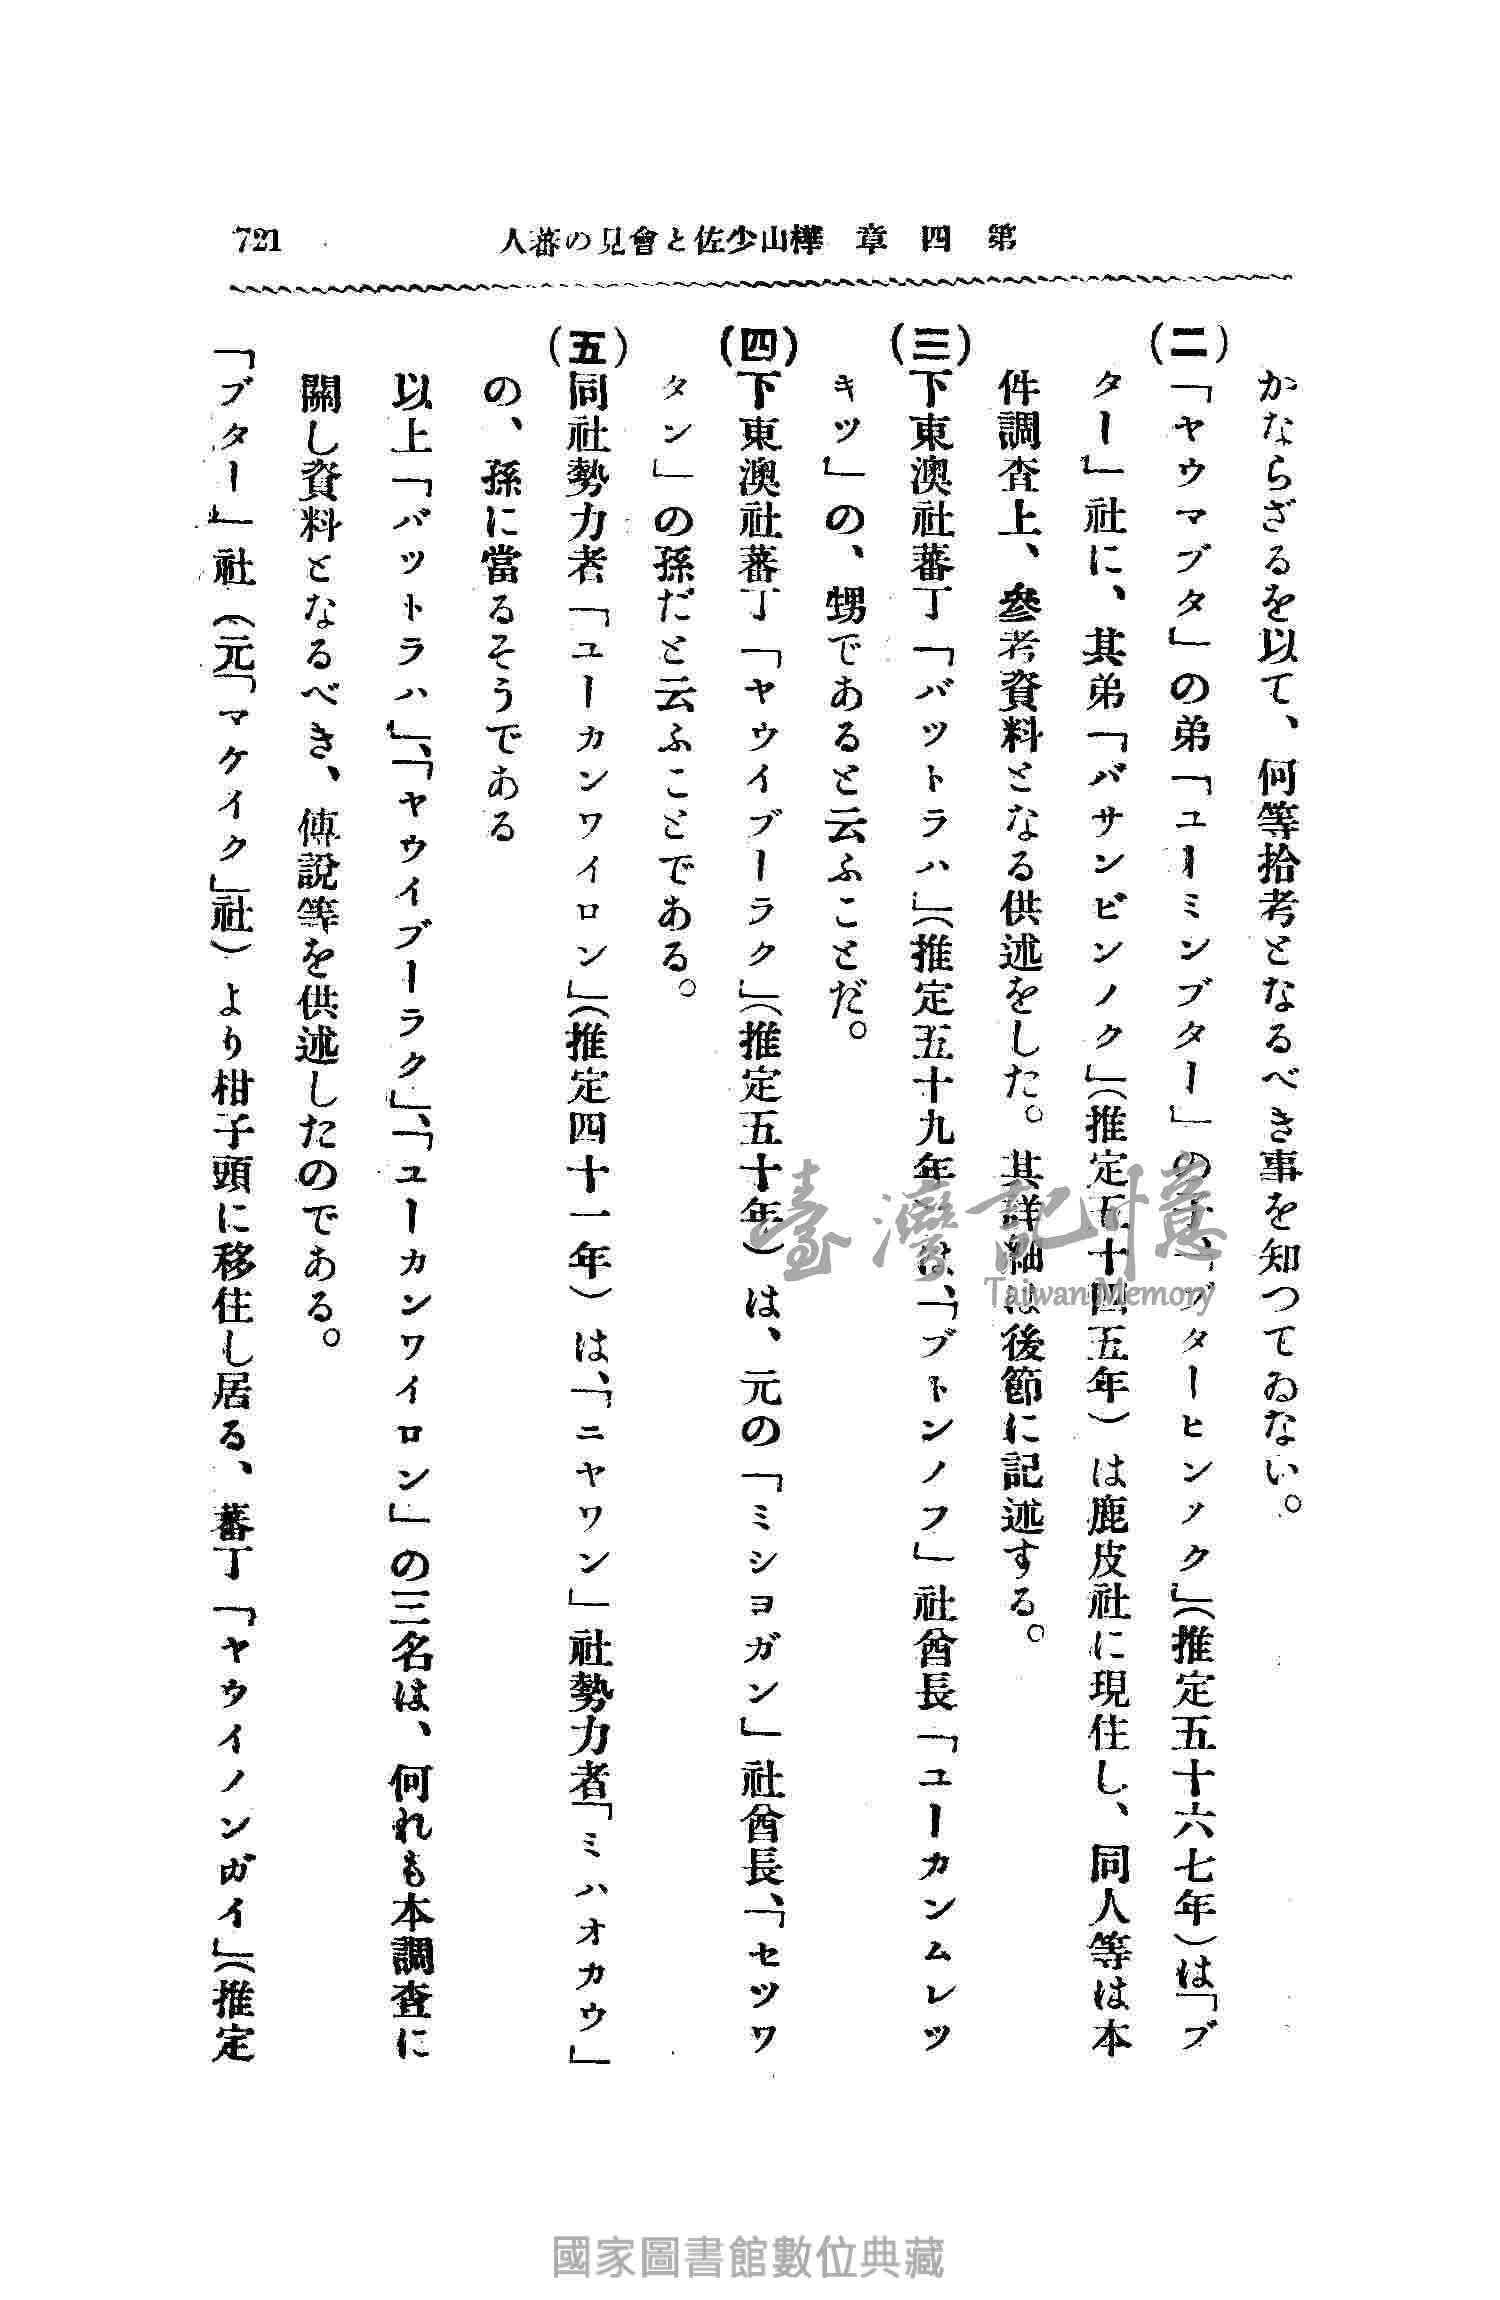 721
人蕃の見會と佐少山樺　章　四　第
かならざるを以て、何等拾考となるべき事を知つてゐない。
(二)「ヤウマブタ」の弟「ユーミンブター」の子、「ブターヒンノク」(推定五十六七年)は「ブ
ター」社に、其弟「バサンビンノク」(推定五十四五年)は鹿皮社に現住し、同人等は本
件調査上、參考資料となる供述をした。其詳細は後節に記述する。
(三)下東澳社蕃丁「バットラハ」(推定五十九年)は、「ブトンノフ」社酋長「ユーカンムレツ
キツ」の、甥であると云ふことだ。
(四)下東澳社蕃丁「ヤウイブーラク」(推定五十年)は、元の「ミシヨガン」社酋長、「セツワ
タン」の孫だと云ふことである。
(五)同社勢力者「ユーカンワイロン」(推定四十一年)は、「ニヤワン」社勢力者「ミハオカウ」
の、孫に當るそうである
以上「バットラハ」、「ヤウイブーラク」、「ユーカンワイロン」の三名は、何れも本調査に
關し資料となるべき、傳說等を供述したのである。
「ブター」社(元「マケイク」社)より柑子頭に移住し居る、蕃丁「ヤウイノンガイ」(推定
臺灣記憶
Taiwan Memory
國家圖書館數位典藏